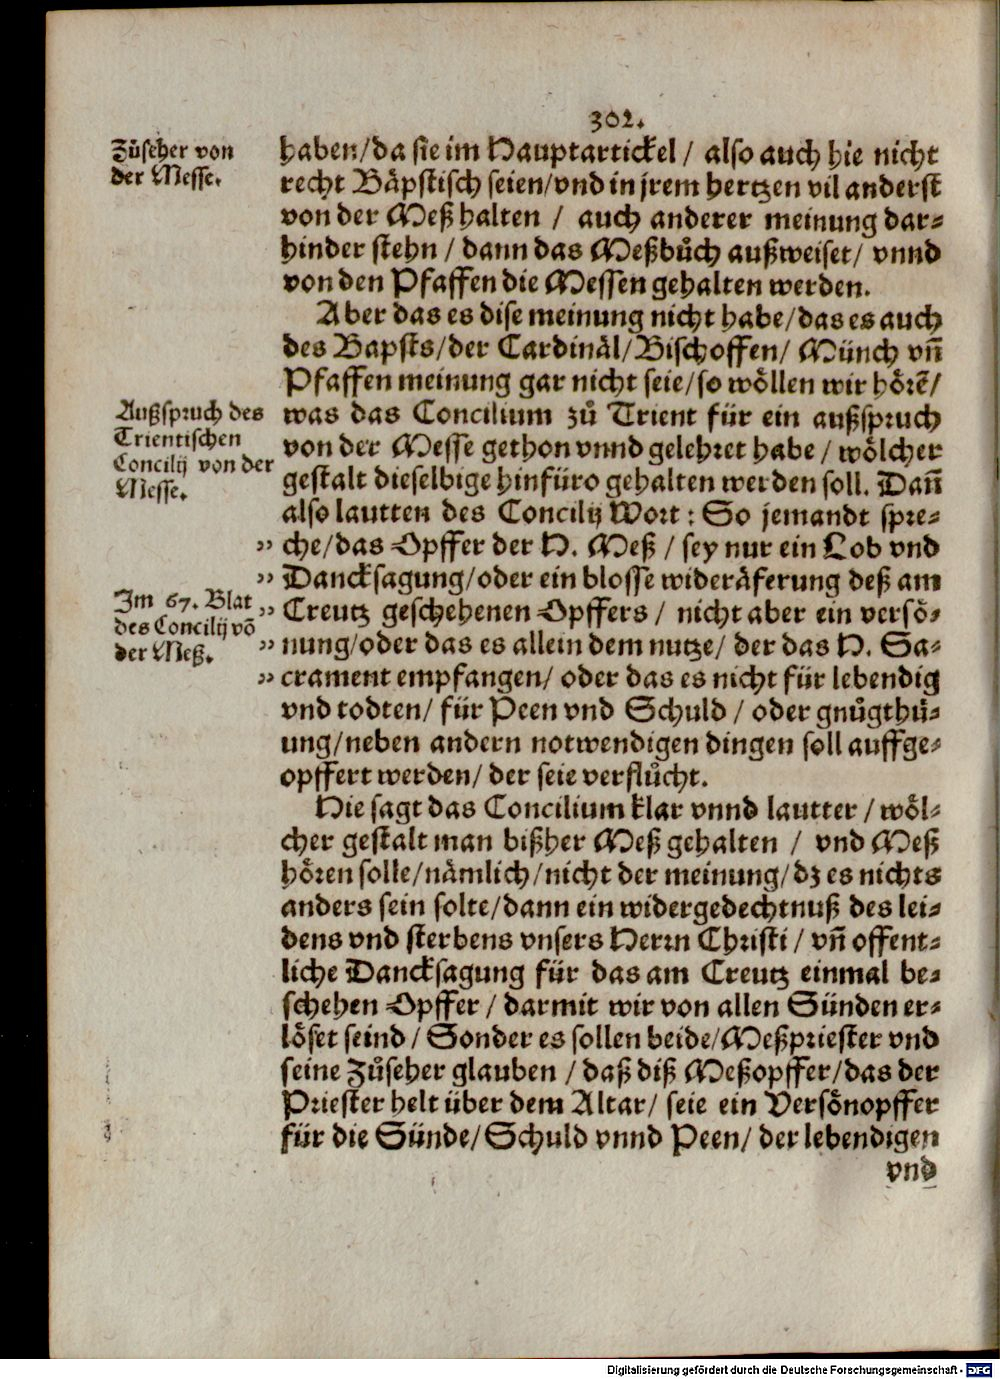 302.
Zůseher von
der Messe.
haben/da sie im Hauptartickel / also auch hie nicht
recht Bäpstisch seien/vnd in jrem hertzen vil anderst
von der Meß halten / auch anderer meinung dar-
hinder stehn / dann das Meßbůch außweiset/ vnnd
von den Pfaffen die Messen gehalten werden.
Aber das es dise meinung nicht habe/das es auch
des Bapsts/der Cardinäl/Bischoffen/ Münch vñ
Pfaffen meinung gar nicht seie/so wöllen wir hörẽ/
Außspruch des
Trientischen
Concilij von der
Messe.
was das Concilium zů Trient für ein außspruch
von der Messe gethon vnnd gelehret habe / wölcher
gestalt dieselbige hinfüro gehalten werden soll. Dañ
also lautten des Concilij Wort: So jemandt spre-
„ che/das Opffer der H. Meß / sey nur ein Lob vnd
„ Dancksagung/oder ein blosse wideräferung deß am
Im 67. Blat
des Concilij võ
der Meß.
„ Creutz geschehenen Opffers / nicht aber ein versö-
„ nung/oder das es allein dem nutze/ der das H. Sa-
„ crament empfangen/ oder das es nicht für lebendig
vnd todten/ für Peen vnd Schuld / oder gnůgthů-
ung/neben andern notwendigen dingen soll auffge-
opffert werden/ der seie verflůcht.
Hie sagt das Concilium klar vnnd lautter / wöl-
cher gestalt man bißher Meß gehalten / vnd Meß
hören solle/nämlich/nicht der meinung/dz es nichts
anders sein solte/dann ein widergedechtnuß des lei-
dens vnd sterbens vnsers Herrn Christi / vñ offent-
liche Dancksagung für das am Creutz einmal be-
schehen Opffer / darmit wir von allen Sünden er-
löset seind / Sonder es sollen beide/Meßpriester vnd
seine Zůseher glauben / daß diß Meßopffer/das der
Priester helt über dem Altar/ seie ein Versönopffer
für die Sünde/Schuld vnnd Peen/ der lebendigen
vnd
Digitalisierung gefördert durch die Deutsche Forschungsgemeinschaft - DFG